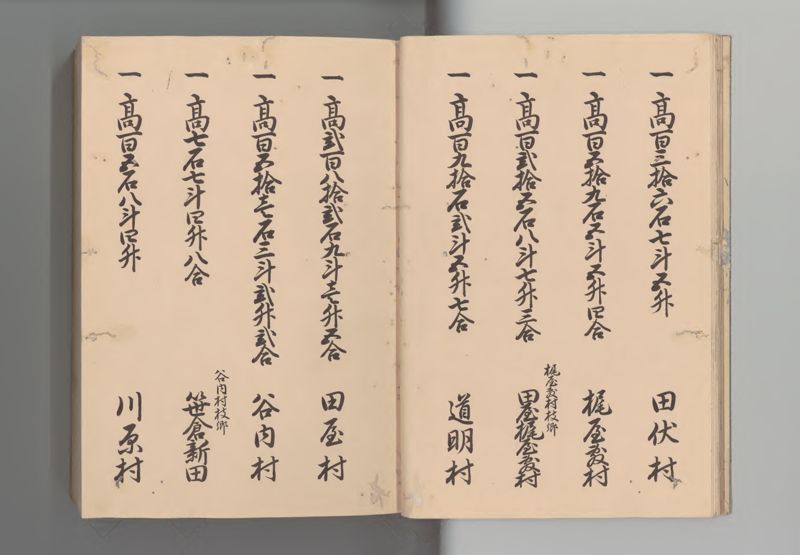 一 高百三拾六石七斗五升 田伏村
一 高百五拾九石五斗五升四合 梶屋敷村
一 高百弐拾五石八斗七升三合 梶屋敷村枝郷 田屋梶屋敷村
一 高百九拾石弐斗五升七合 道明村
一 高弐百八拾弐石九斗壱升五合 田屋村
一 高百五拾壱石三斗弐升弐合 谷内村
一 高七石七斗四升八合 谷内村枝郷 笹倉新田
一 高百五石八斗四升 川原村